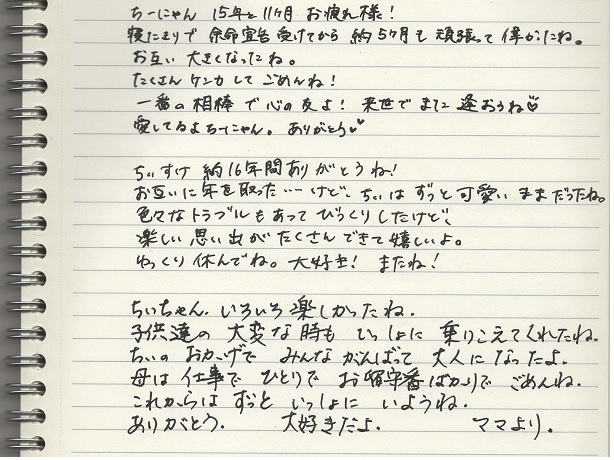 ちーにゃん 15年と11ヶ月 お疲れ様!
寝たきりで 余命宣告受けてから 約5ヶ月も 頑張って偉かったね。
お互い 大きくなったね。
たくさん ケンカして ごめんね!
一番の相棒で心の友よ! 来世でまた逢おうね♡
愛してるよちーにゃん。ありがとう♡
ちぃすけ 約16年間ありがとうね!
お互いに年を取った…けど、ちぃはずっと可愛いままだったね。
色々なトラブルもあってびっくりしたけど、
楽しい思い出がたくさんできて嬉しいよ。
ゆっくり休んでね。大好き! またね!
ちぃちゃん、いろいろ楽しかったね。
子供達の 大変な時も いっしょに 乗りこえてくれたね。
ちぃの おかげで みんな がんばって 大人に なったよ。
母は 仕事で ひとりで お留守番ばかりで ごめんね。
これからは ずっと いっしょに いようね。
ありがとう。 大好きだよ。 ママより。